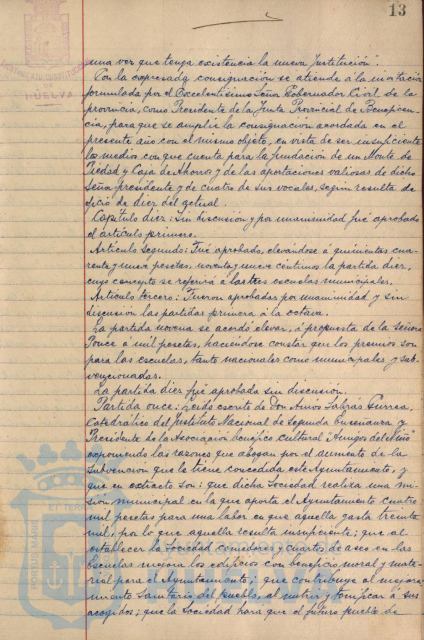 13
HUELVA
una vez que tenga existencia la nueva Institución".
Con la expresada consignación se atiende á la invitación
formulada por el Excelentísimo Señor Gobernador Civil de la
provincia, como Presidente de la Junta Provincial de Beneficen-
cia, para que se amplíe la consignación acordada en el
presente año con el mismo objeto, en vista de ser insuficientes
los medios con que cuenta para la fundación de un Monte de
Piedad y Caja de Ahorros y de las aportaciones valiosas de dicho
Señor presidente y de cuatro de sus vocales, según resulta de
oficio de diez del actual.
Capítulo diez: Sin discusión y por unanimidad fué aprobado
el artículo primero.
Artículo segundo: Fué aprobado, elevándose á quinientas cua-
renta y nueve pesetas, noventa y nueve céntimos la partida diez,
cuyo concepto se referirá a las tres escuelas municipales.
Artículo tercero: Fueron aprobadas por unanimidad y sin
discusión las partidas primera á la octava.
La partida novena se acordó elevar, á propuesta de la Señora
Ponce á mil pesetas, haciéndose constar que los premios son
para las escuelas, tanto nacionales como municipales y sub-
vencionadas.
La partida diez fué aprobada sin discusión.
Partida once: Leído escrito de Don Amós Sabrás Gurrea,
Catedrático del Instituto Nacional de Segunda Enseñanza y
Presidente de la Asociación benéfico cultural "Amigos del Niño"
exponiendo las razones que abogan por el aumento de la
Subvención que le tiene concedida este Ayuntamiento, y
que en extracto son: que dicha Sociedad realiza una mi-
sión municipal en la que aporta el Ayuntamiento cuatro
mil pesetas para una labor en que aquella gasta treinta
mil; por lo que aquella resulta insuficiente; que al
establecer la Sociedad comedores y cuartos de aseo en las
Escuelas mejora los edificios con beneficio moral y mate-
rial para el Ayuntamiento; que contribuye al mejora-
miento sanitario del pueblo, al nutrir y tonificar á sus
acogidos; que la Sociedad hará que el futuro pueblo de